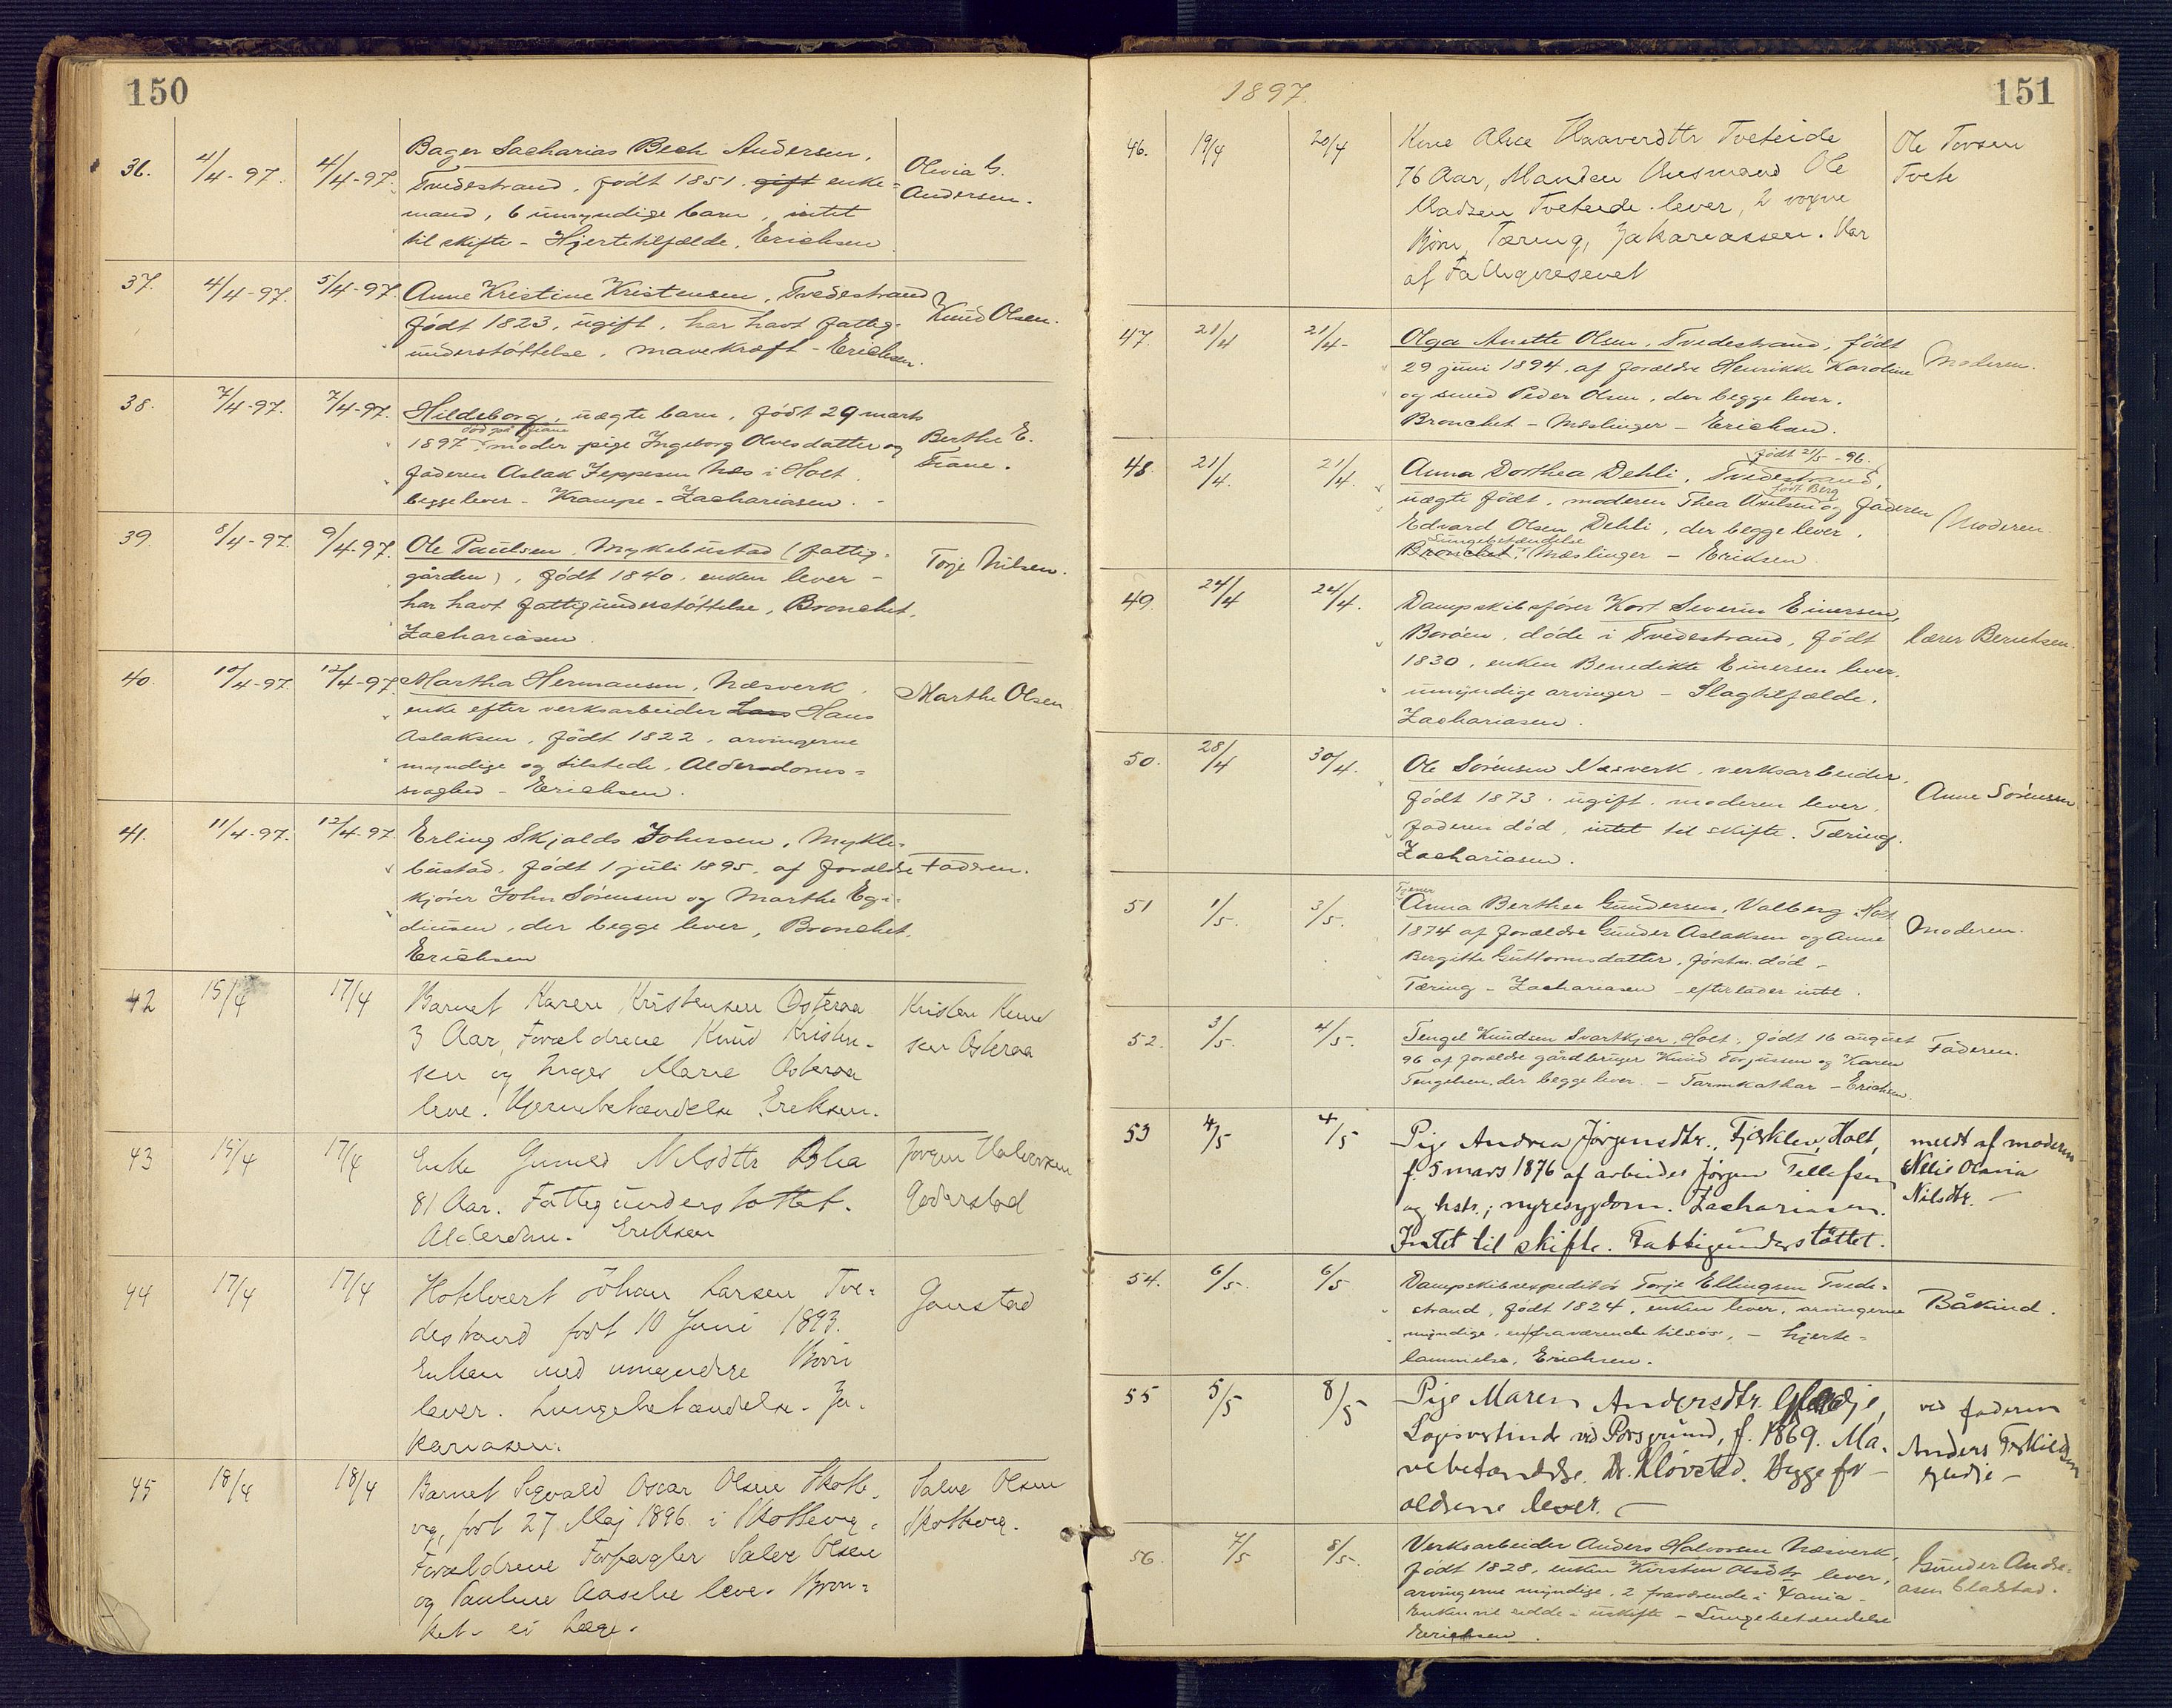 150
36. 4/4-97. 4/4-97. Bager Sacharias Bech Andersen, Olivia G.
Tvedestrand, født 1851. gift enke= Andersen.
mand, 6 umyndige barn, intet
til skifte - Hjertetilfælde, Erichsen
37. 4/4-97. 5/4-97. Anne Kristine Kristensen, Tvedestrand Knud Olsen.
født 1823, ugift, har havt fattig-
understøttelse, mavekræft - Erichsen.
38. 7/4-97. 7/4-97. Hildeborg, uægte barn, født 29 marts
død på Fiane
1897, moder pige Ingeborg Olvesdatter og Berthe E.
faderen Aslak Jeppesen Næs i Holt. Fiane.
begge lever - Krampe - Zachariasen.
39. 8/4-97. 9/4-97. Ole Paulsen, Myklebustad (fattig- Torje Nilsen.
gården), født 1840, enken lever -
har havt fattigunderstøttelse, Bronchet,
Zachariasen.
40. 10/4-97 12/4-97. Martha Hermansen, Næsverk, Marthe Olsen
enke efter verksarbeider Lars Hans
Aslaksen, født 1822, arvingerne
myndige og tilstede, Alderdoms=
svaghed - Erichsen.
41. 11/4-97. 12/4-97 Erling Skjalds Johnsen, Mykle-
bustad, født 1 juli 1895, af forældre Faderen.
kjører John Sørensen og Marthe Egi-
diusen, der begge lever, Bronchet,
Erichsen
42 15/4 17/4 Barnet Karen Kristensen Osteraa Kristen Knud
3 Aar, Forældrene Knud Kristen- sen Osteraa
sen og Inger Marie Osteraa
leve. Hjernebetændelse Eriksen.
43 15/4 17/4 Enke Gunild Nilsdttr Blia Jørgen Halvorsen
81 Aar. Fattigunderstøttet. Goderstad
Alderdom. Eriksen
44 17/4 17/4 Hotelvært Johan Larsen Tve- Gaustad
destrand født 10 Juni 1893.
Enken med umyndige Børn
lever. Lungebetændelse. Za-
kariasen.
45 18/4 18/4 Barnet Sigvald Oscar Olsen Skotte- Salve Olsen
vig, født 27 Maj 1896 i Skottevig. Skottevig.
Forældrene Forpagter Salve Olsen
og Pauline Aaselie leve. Bron-
ket. ei Læge.
1897. 151
46. 19/4 20/4 Kone Alice Haaverdttr Tveteide Ole Torsen
76 Aar, Manden Husmand Ole Tvete
Madsen Tveteide lever, 2 voxne
Børn, Tæring, Zakariassen. Var
af Fattigvæsenet
47. 21/4 21/4- Olga Anette Olsen, Tvedestrand, født Moderen.
29 juni 1894, af forældre Henrikke Karoline
og smed Peder Olsen, der begge lever.
Bronchet - Mæslinger - Erichsen.
født 21/5-96.
48. 21/4. 21/4. Anna Dorthea Dehli, Tvedestrand,
født Berg
uægte født, moderen Thea Axelsen og faderen Moderen.
Edvard Olsen Dehli, der begge lever,
Lungebetændelse
Bronchet, Mæslinger - Eriksen
49. 24/4 24/4. Dampskibsfører Kort Severin Einersen,
Borøen, døde i Tvedestrand, født lærer Berntsen.
1830, enken Benedikte Einersen lever.
umyndige arvinger - Slagtilfælde,
Zachariasen.
50. 28/4 30/4. Ole Sørensen Næsverk, verksarbeider, Anne Sørensen
født 1873, ugift, moderen lever,
faderen død, intet til skifte. Tæring.
Zachariasen.
Tjener
51 1/5. 3/5. Anna Berthea Gundersen, Valberg, Holt Moderen.
1874 af forældre Gunder Aslaksen og Anne
Bergitte Guttormsdatter, førstn. død -
Tæring - Zachariasen - efterlader intet.
52. 3/5. 4/5. Tengel Knudsen Svartkjær, Holt, født 16 august Faderen.
96 af forældre gårdbruger Knud Torjussen og Karen
Tengelsen, der begge lever. - Tarmkathar - Erichsen.
53 4/5 4/5 Pige Andrea Jørgensdtr., Fjærkleiv, Holt, meldt af moderen
f. 5 mars 1876 af arbeider Jørgen Tellefsen Olavia
og hstr.; nyresygdom. Zachariasen. Nilsdtr. -
Intet til skifte. Fattigunderstøttet.
54. 6/5. 6/5 Dampskibsexpeditør Torje Ellingsen Tvede- Båkind.
strand, født 1824, enken lever, arvingerne
myndige, en fraværende tilsøs, - hjerte-
lammelse, Erichsen.
55 5/5 8/5 Pige Maren Andersdtr. ved faderen
Logivertinde ved Porsgrund, f. 1869. Ma- Anders Terkildsen
vebetændelse. Dr. Kløvstad. Begge for-
ældrene lever. -
56. 7/5 8/5. Verksarbeider Anders Halvorsen Næsverk, Gunder Andre-
født 1828, enken Kirsten Olsdtr. lever, asen
arvingerne myndige, 2 fraværende i
Enken vil sidde i uskifte - Lungebetændelse
Erichsen.